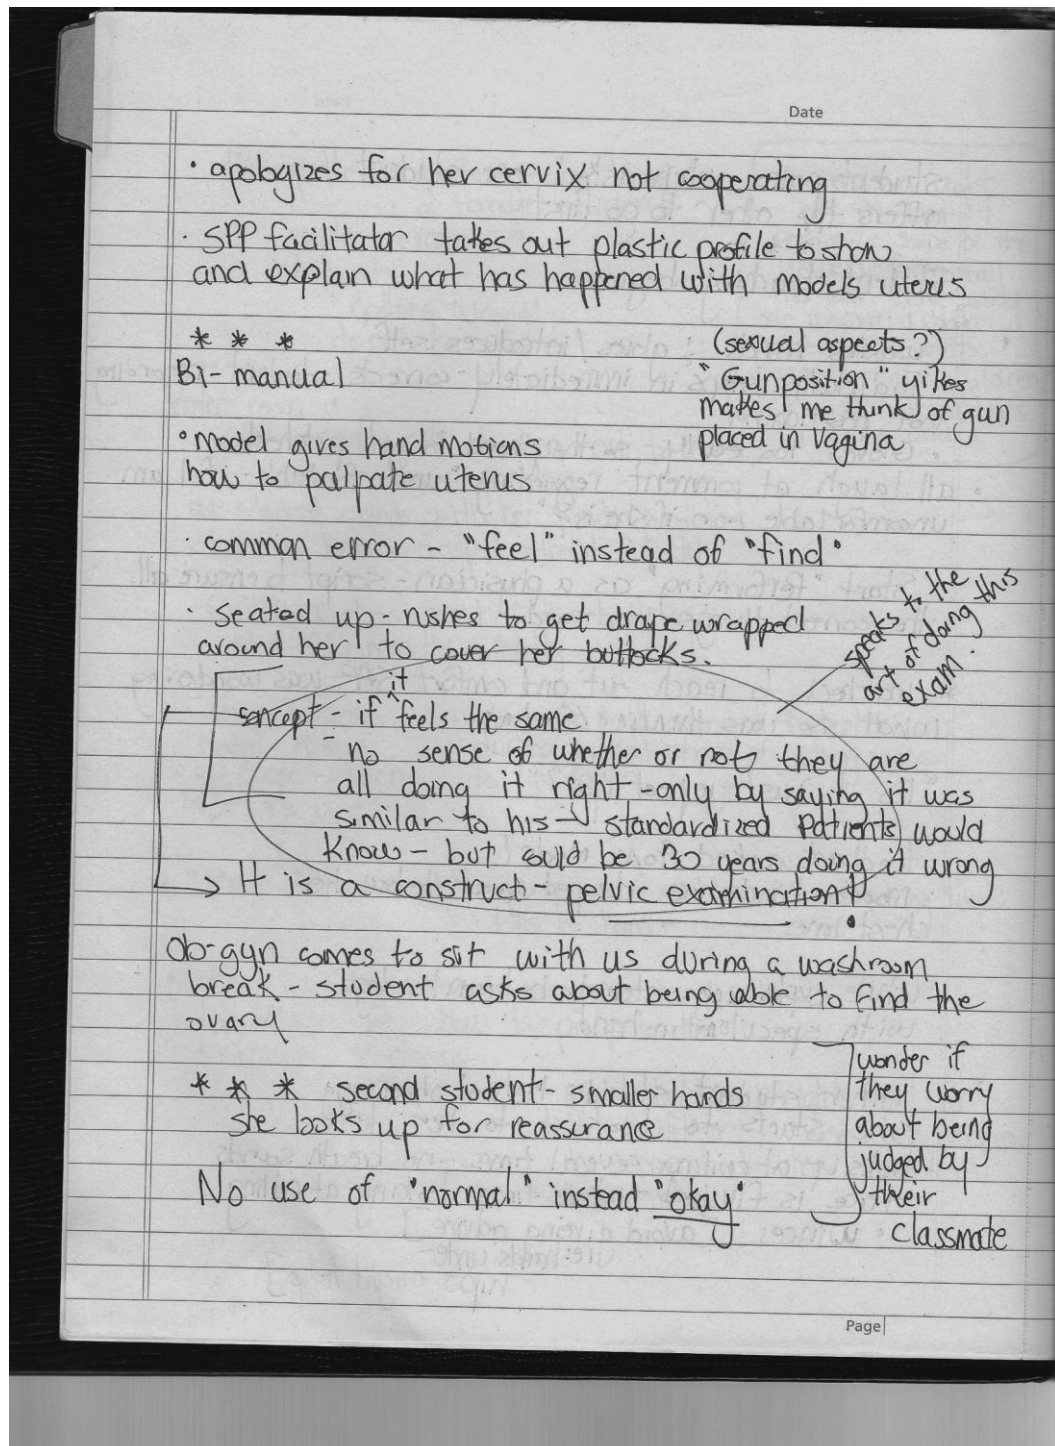 Date
• apologizes for her cervix not cooperating
• SPP facilitator takes out plastic profile to show
and explain what has happened with models uterus
* * *
Bi-manual
(sexual aspects?)
"Gunposition" yikes
makes me think of gun
placed in Vagina
• model gives hand motions
how to palpate uterus
• common error - "feel" instead of "find"
• Seated up - rushes to get drape wrapped
around her to cover her buttocks.
speaks to the
art of doing this
exam.
concept - if it feels the same
- no sense of whether or not they are
all doing it right - only by saying it was
similar to his → standardized patients would
know - but could be 30 years doing it wrong
→ It is a construct - pelvic examination
Ob-gyn comes to sit with us during a washroom
break - student asks about being able to find the
ovary
* * * second student - smaller hands
she looks up for reassurance
No use of "normal" instead "okay"
wonder if
they worry
about being
judged by
their
classmate
Page